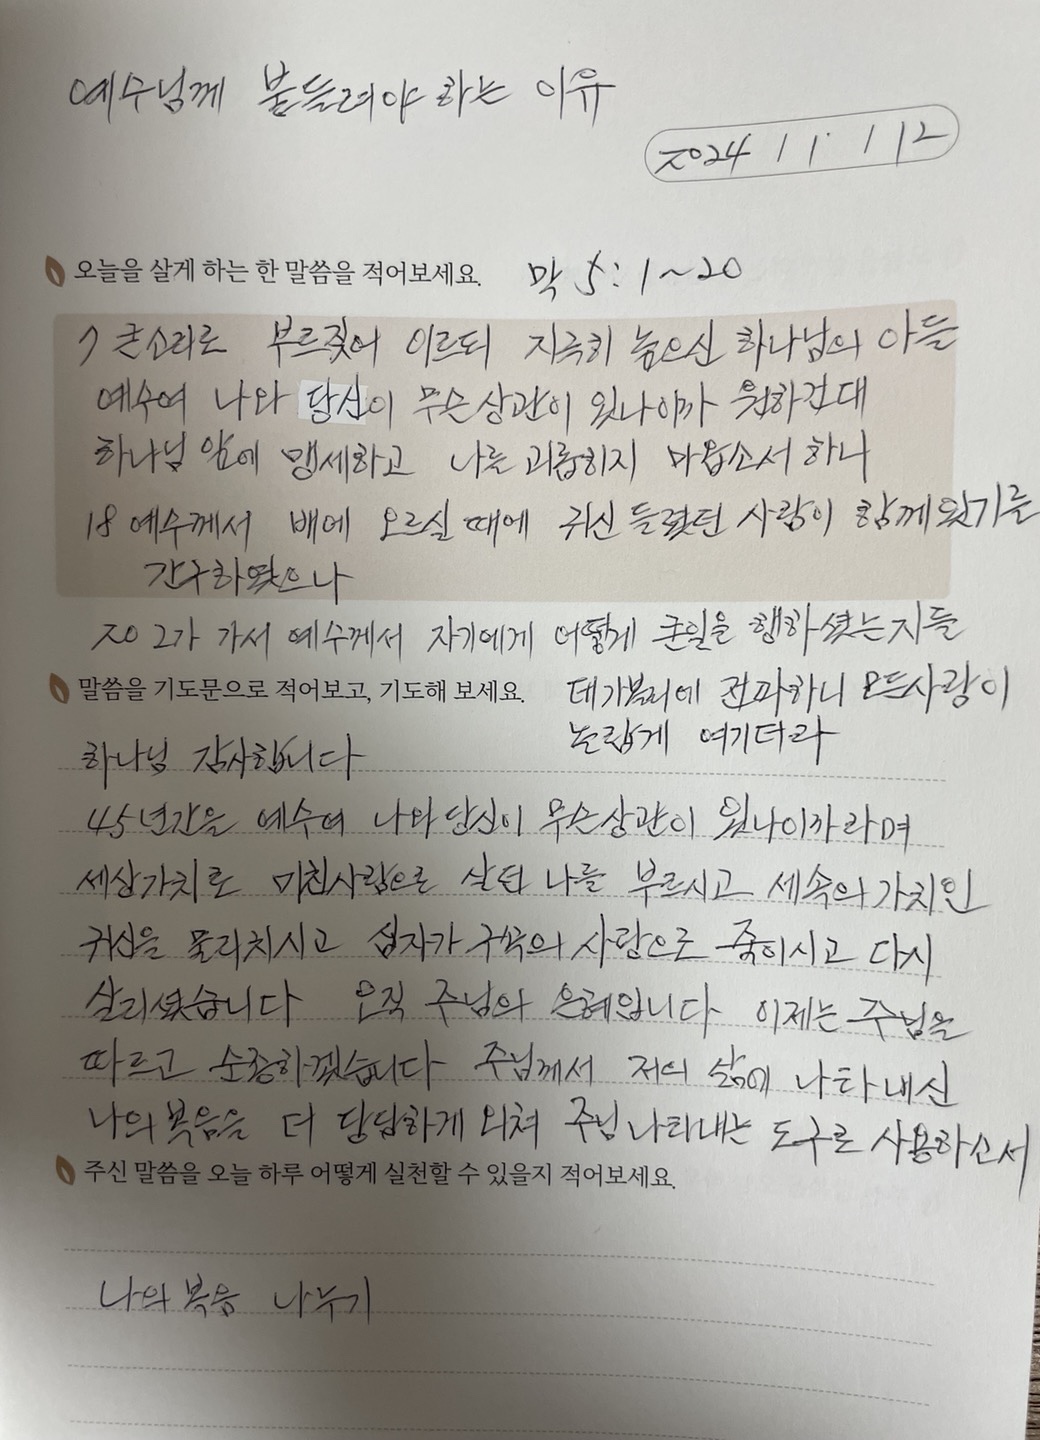 예수님께 붙들려야 하는 이유
2024 / 11. / 12
오늘을 살게 하는 한 말씀을 적어보세요. 막 5:1~20
7 큰소리로 부르짖어 이르되 지극히 높으신 하나님의 아들
예수여 나와 당신이 무슨상관이 있나이까 원하건대
하나님 앞에 맹세하고 나를 괴롭히지 마옵소서 하니
18 예수께서 배에 오르실 때에 귀신 들렸던 사람이 함께 있기를
간구하였으나
20 그가 가서 예수께서 자기에게 어떻게 큰일을 행하셨는지를
말씀을 기도문으로 적어보고, 기도해 보세요. 데가볼리에 전파하니 모든사람이
놀랍게 여기더라
하나님 감사합니다
45년간을 예수여 나와 당신이 무슨상관이 있나이까라며
세상가치로 미친사람으로 살던 나를 부르시고 세속의 가치인
귀신을 물리치시고 십자가 구속의 사랑으로 죽이시고 다시
살리셨습니다 오직 주님의 은혜입니다 이제는 주님을
따르고 순종하겠습니다 주님께서 저의 삶에 나타내신
나의 복음을 더 담담하게 외쳐 주님 나타내는 도구로 사용하소서
주신 말씀을 오늘 하루 어떻게 실천할 수 있을지 적어보세요.
나의 복음 나누기